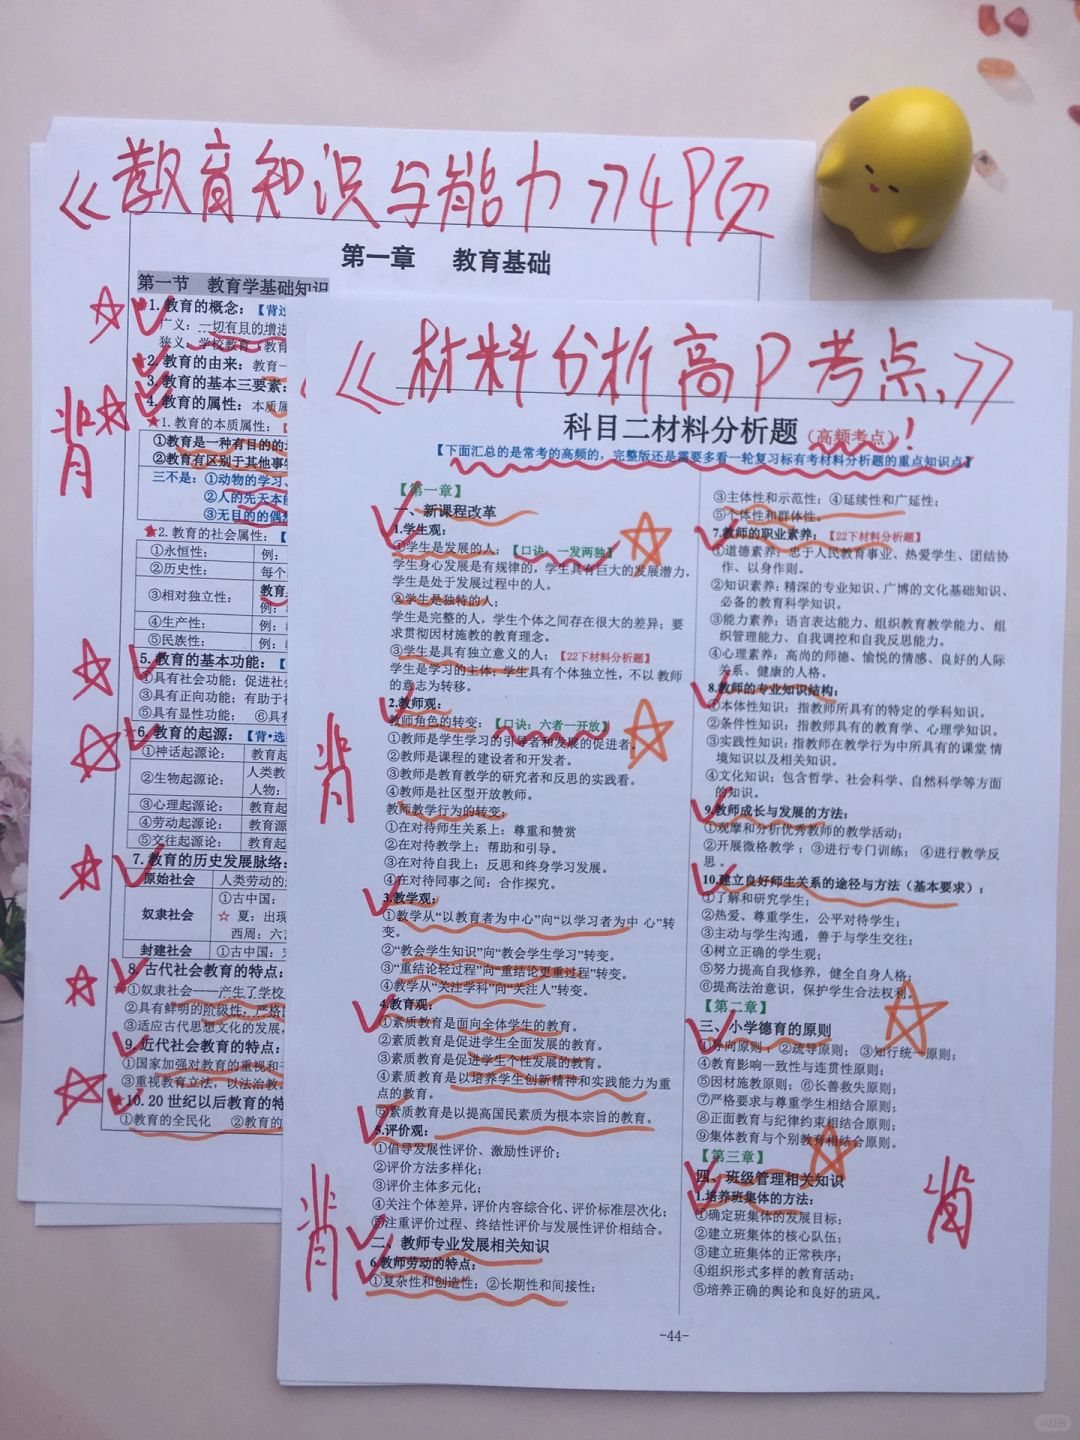 《教育知识与能力》49页
第一章 教育基础
第一节 教育学基础知识
1.教育的概念:【背过
广义:一切有目的增进
狭义:学校教育(教育
★2.教育的由来:教育一
3.教育的基本三要素:
4.教育的属性:本质属
★1.教育的本质属性:
①教育是一种有目的的
②教育有区别于其他事物
三不是:①动物的学习、
②人的先天本能
③无目的的偶然
★2.教育的社会属性:【
①永恒性: 例:
②历史性: 每个
③相对独立性: 教育
例:
④生产性: 例:
⑤民族性: 例:
5.教育的基本功能:【
①具有社会功能:促进社会
③具有正向功能:有助于
⑤具有显性功能: ⑥具有
★6.教育的起源:【背·选
①神话起源论: 教育起
②生物起源论: 人类教
人物:
③心理起源论: 教育起
④劳动起源论: 教育源
⑤交往起源论: 教育起
7.教育的历史发展脉络:
原始社会 人类劳动的
奴隶社会 ①古中国:
☆ 夏:出现
西周:六
封建社会 ①古中国:
8.古代社会教育的特点:
★①奴隶社会——产生了学校
②具有鲜明的阶级性,严格
③适应古代思想文化的发展,
9.近代社会教育的特点:
①国家加强对教育的重视和
③重视教育立法,以法治教
★10.20世纪以后教育的特
①教育的全民化 ②教育的
背
《材料分析高P考点》
科目二材料分析题(高频考点)!
【下面汇总的是常考的高频的,完整版还是需要多看一轮复习标有考材料分析题的重点知识点】
【第一章】
一、新课程改革
1.学生观:
①学生是发展的人;【口诀:一发两独】
学生身心发展是有规律的,学生具有巨大的发展潜力,
学生是处于发展过程中的人。
②学生是独特的人;
学生是完整的人,学生个体之间存在很大的差异;要
求贯彻因材施教的教育理念。
③学生是具有独立意义的人;【22下材料分析题】
学生是学习的主体;学生具有个体独立性,不以 教师
的意志为转移。
2.教师观:
教师角色的转变:【口诀:六者一开放】
①教师是学生学习的引导者和发展的促进者。
②教师是课程的建设者和开发者。
③教师是教育教学的研究者和反思的实践看。
④教师是社区型开放教师。
教师教学行为的转变:
①在对待师生关系上:尊重和赞赏
②在对待教学上:帮助和引导。
③在对待自我上:反思和终身学习发展。
④在对待同事之间:合作探究。
3.教学观:
①教学从“以教育者为中心”向“以学习者为中 心”转
变。
②“教会学生知识”向“教会学生学习”转变。
③“重结论轻过程”向“重结论更重过程”转变。
④教学从“关注学科”向“关注人”转变。
4.教育观:
①素质教育是面向全体学生的教育。
②素质教育是促进学生全面发展的教育。
③素质教育是促进学生个性发展的教育。
④素质教育是以培养学生创新精神和实践能力为重
点的教育。
⑤素质教育是以提高国民素质为根本宗旨的教育。
5.评价观:
①倡导发展性评价、激励性评价;
②评价方法多样化;
③评价主体多元化;
④关注个体差异,评价内容综合化、评价标准层次化;
⑤注重评价过程、终结性评价与发展性评价相结合。
二、教师专业发展相关知识
6.教师劳动的特点:
①复杂性和创造性;②长期性和间接性;
背
背
③主体性和示范性;④延续性和广延性;
⑤个体性和群体性。
7.教师的职业素养:【22下材料分析题】
①道德素养:忠于人民教育事业、热爱学生、团结协
作、以身作则。
②知识素养:精深的专业知识、广博的文化基础知识、
必备的教育科学知识。
③能力素养:语言表达能力、组织教育教学能力、组
织管理能力、自我调控和自我反思能力。
④心理素养:高尚的师德、愉悦的情感、良好的人际
关系、健康的人格。
8.教师的专业知识结构:
①本体性知识:指教师所具有的特定的学科知识。
②条件性知识:指教师具有的教育学、心理学知识。
③实践性知识:指教师在教学行为中所具有的课堂 情
境知识以及相关知识。
④文化知识:包含哲学、社会科学、自然科学等方面
的知识。
9.教师成长与发展的方法:
①观摩和分析优秀教师的教学活动;
②开展微格教学;③进行专门训练; ④进行教学反
思。
10.建立良好师生关系的途径与方法(基本要求):
①了解和研究学生;
②热爱、尊重学生,公平对待学生;
③主动与学生沟通,善于与学生交往;
④树立正确的学生观;
⑤努力提高自我修养,健全自身人格;
⑥提高法治意识,保护学生合法权利。
【第二章】
三、小学德育的原则
①导向原则;②疏导原则; ③知行统一原则;
④教育影响一致性与连贯性原则;
⑤因材施教原则;⑥长善救失原则;
⑦严格要求与尊重学生相结合原则;
⑧正面教育与纪律约束相结合原则;
⑨集体教育与个别教育相结合原则。
【第三章】
四、班级管理相关知识
1.培养班集体的方法:
①确定班集体的发展目标;
②建立班集体的核心队伍;
③建立班集体的正常秩序;
④组织形式多样的教育活动;
⑤培养正确的舆论和良好的班风。
背
-44-
小红书